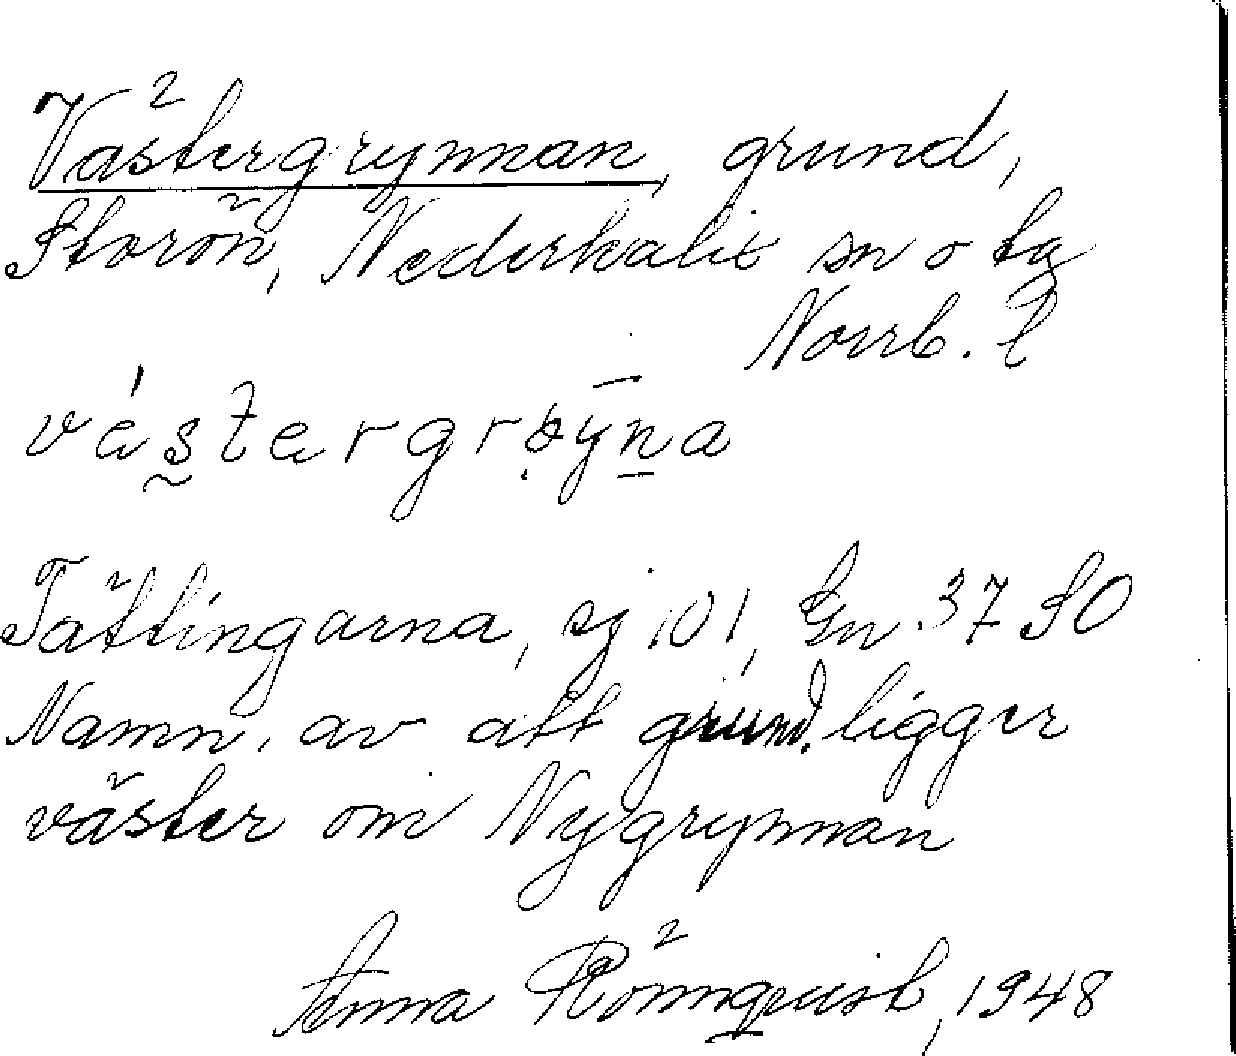 Västergrynnan, grund,
Storön, Nederkalix sn o tg
Norrb. l
Tättingarna, sj 101, Gn. 37 SO
Namn. av att grund. ligger
väster om Nygrynnan
Anna Rönnquist, 1948